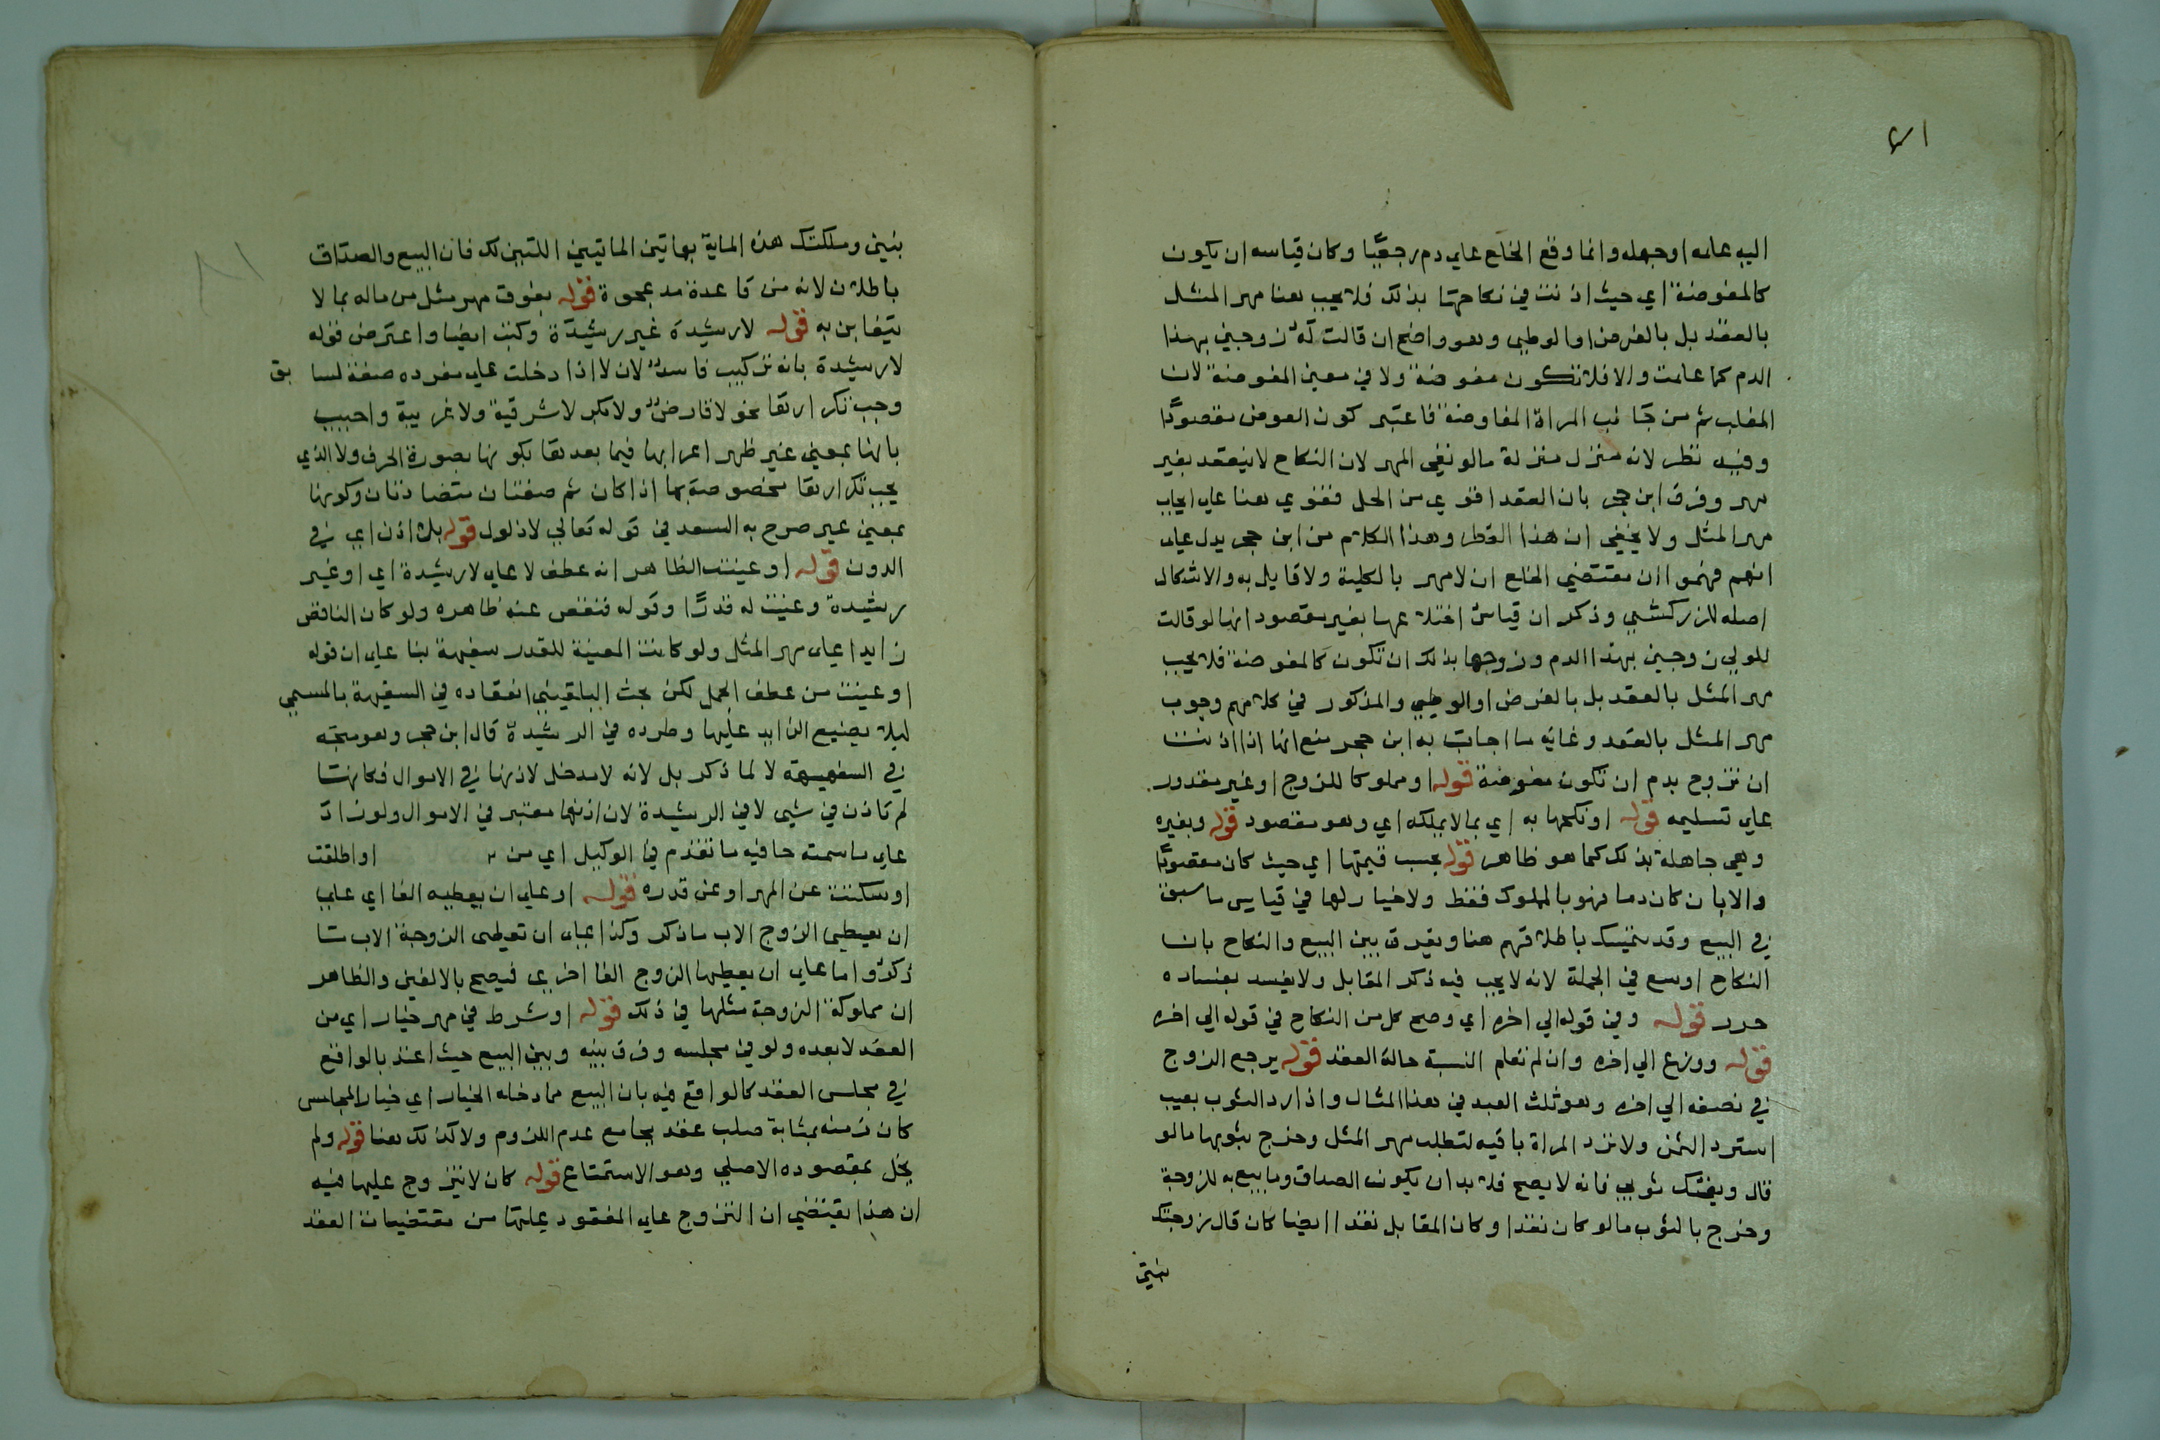 ٤١
اليه علمه اوجهله وانما وقع الخلع علي دم رجعيا وكان قياسه ان يكون
كالمفوضة اي حيث اذنت في نكاحها بذلك فلا يجب هنا مهر المثل
بالعقد بل بالفرض او الوطيي وهو واضح ان قالت له زوجني بهذا
الدم كما علمت والا فلا تكون مفوضة ولا في معني المفوضة لان
المغلب ثم من جانب المراة المفاوضة فاعتبر كون العوض مقصودا
وفيه نظر لانه منزل منزلة مالو نفي المهر لان النكاح لا ينعقد بغير
مهر وفرق ابن حجر بان العقد اقوي من الحل فقوي هنا علي ايجاب
مهر المثل ولا يخفي ان هذا النظر وهذا الكلام من ابن حجر يدل علي
انهم فهموا ان مقتضي الخلع ان لا مهر بالكلية ولا قايل به والاشكال
اصله للزركشي وذكر ان قياس اختلاعها بغير مقصود انها لو قالت
للولي زوجني بهذا الدم وزوجها بذلك ان تكون كالمفوضة فلا يجب
مهر المثل بالعقد بل بالفرض او الوطيي والمذكور في كلامهم وجوب
مهر المثل بالعقد وغايه ما اجاب به ابن حجر منع انها اذا اذنت
ان تتزوج بدم ان تكون مفوضة قوله او مملوكا للزوج او غير مقدور
علي تسليمه قوله او نكحها به اي بما لا يملكه اي وهو مقصود قوله وبغيره
وهي جاهلة بذلك كما هو ظاهر قوله بحسب قيمتها اي حيث كان مقصودًا
والا بان كان دما فهو بالمملوك فقط ولا خيار لها في قياس ما سبق
في البيع وقد يتمسك باطلاقهم هنا ويفرق بين البيع والنكاح بان
النكاح اوسع في الجملة لانه لا يجب فيه ذكر المقابل ولا يفسد بفساده
حرر قوله وفي قوله الي اخره اي وصح كل من النكاح في قوله الي اخره
قوله ووزع الي اخره وان لم تعلم النسبة حالة العقد قوله يرجع الزوج
في نصفه الي اخره وهو ثلث العبد في هذا المثال واذا رد الثوب بعيب
استرد الثمن ولا ترد المراة باقيه لتطلب مهر المثل وخرج بثوبها مالو
قال وبعتك ثوبي فانه لا يصح فلا بد ان يكون الصداق وما بيع به للزوجة
وخرج بالثوب مالو كان نقدا وكان المقابل نقدا ايضا كان قال زوجتك
بنتي
بنتي وملكتك هذه الماية بهاتين الماتيتين اللتين لك فان البيع والصداق
باطلان لانه من قاعدة مد عجوة قوله بفوق مهر مثل من ماله بما لا
يتغابن به قوله لا رشيدة غير رشيدة وكتب ايضا واعترض قوله
لا رشيدة بانه تركيب فاسد لان لا اذا دخلت علي مفرده صفة لسابق
وجب تكرارها نحو لا فارض ولا بكر لا شرقية ولا غربية واجيب
بانها بمعني غير ظهر اعرابها فيما بعدها بكونها بصورة الحرف ولا الذي
يجب تكرارها مخصوصة بما اذا كان ثم صفتان متضادتان وكونها
بمعني غير صرح به السعد في قوله تعالي لا ذلول قوله بلا اذن اي في
الدون قوله او عينت الظاهر انه عطف لا علي لا رشيدة اي او غير
رشيدة وعينت له قدرًا وقوله فنقص عنه ظاهره ولو كان الناقص
زايدا علي مهر المثل ولو كانت المعينة للقدر سفيهة بنا علي ان قوله
او عينت من عطف الجمل لكن بحث البلقيني انعقاده في السفيهة بالمسمي
ليلا يضيع الزايد عليها وطرده في الرشيدة قال ابن حجر وهو متجه
في السفيهة لا لما ذكر بل لانه لا مدخل لاذنها في الاموال فكانها
لم تاذن في شيي لا في الرشيدة لان اذنها معتبر في الاموال ولو زاد
علي ما سمته حا فيه ما تقدم في الوكيل اي من او اطلقت
او سكتت عن المهر او عن قدره قوله او علي ان يعطيه الفا اي علي
ان يعطي الزوج الاب ما ذكر وكذا علي ان تعطي الزوجة الاب ما
ذكر واما علي ان يعطيها الزوج الفا اخري فيصح بالالفين والظاهر
ان مملوكة الزوجة مثلها في ذلك قوله او شرط في مهر خيار اي من
العقد لا بعده ولو في مجلسه وفرق بينه وبين البيع حيث اعتد بالواقع
في مجلس العقد كالواقع فيه بان البيع مما دخله الخيار اي خيار المجلس
كان زمنه بمثابة صلب عقد بجامع عدم اللزوم ولا كذلك هنا قوله ولم
يخل بمقصوده الاصلي وهو الاستمتاع قوله كان لا يتزوج عليها فيه
ان هذا يقتضي ان التزوج علي المعقود عليها من مقتضيات العقد